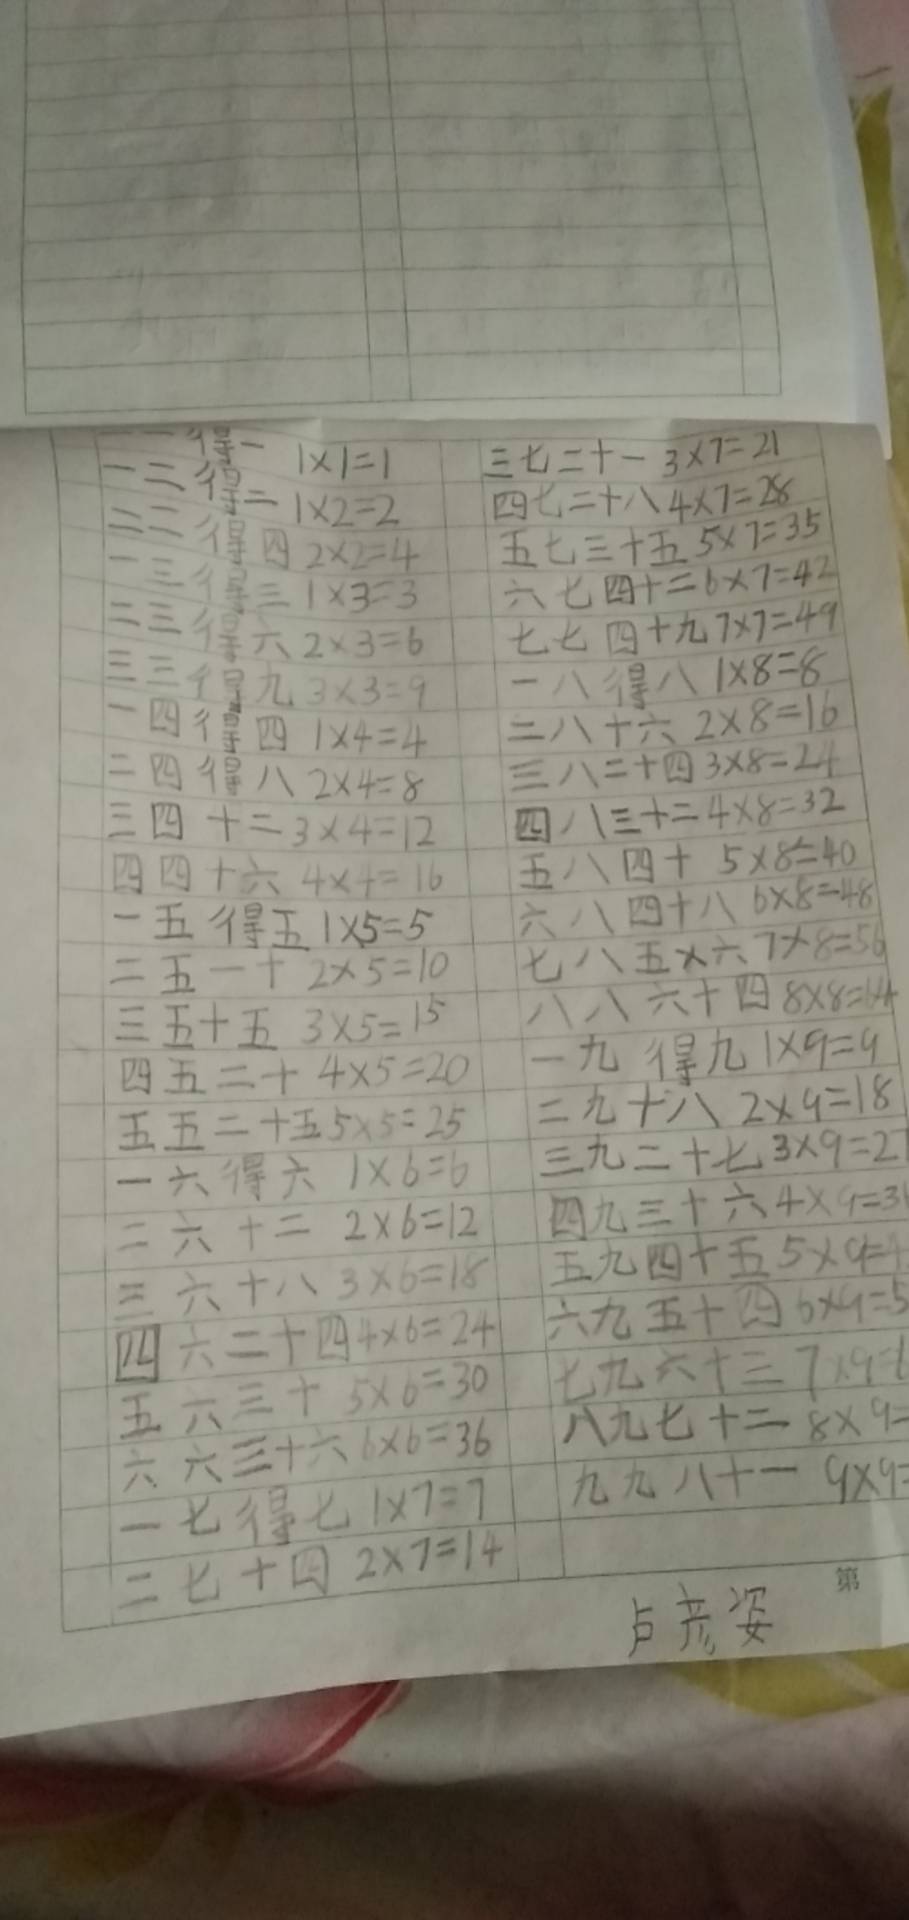 一一得一 1×1=1
一二得二 1×2=2
二二得四 2×2=4
一三得三 1×3=3
二三得六 2×3=6
三三得九 3×3=9
一四得四 1×4=4
二四得八 2×4=8
三四十二 3×4=12
四四十六 4×4=16
一五得五 1×5=5
二五一十 2×5=10
三五十五 3×5=15
四五二十 4×5=20
五五二十五 5×5=25
一六得六 1×6=6
二六十二 2×6=12
三六十八 3×6=18
四六二十四 4×6=24
五六三十 5×6=30
六六三十六 6×6=36
一七得七 1×7=7
二七十四 2×7=14
三七二十一 3×7=21
四七二十八 4×7=28
五七三十五 5×7=35
六七四十二 6×7=42
七七四十九 7×7=49
一八得八 1×8=8
二八十六 2×8=16
三八二十四 3×8=24
四八三十二 4×8=32
五八四十 5×8=40
六八四十八 6×8=48
七八五×六 7×8=56
八八六十四 8×8=64
一九得九 1×9=9
二九十八 2×9=18
三九二十七 3×9=27
四九三十六 4×9=3
五九四十五 5×9=4
六九五十四 6×9=5
七九六十三 7×9=6
八九七十二 8×9=
九九八十一 9×9=
第
卢彦姿